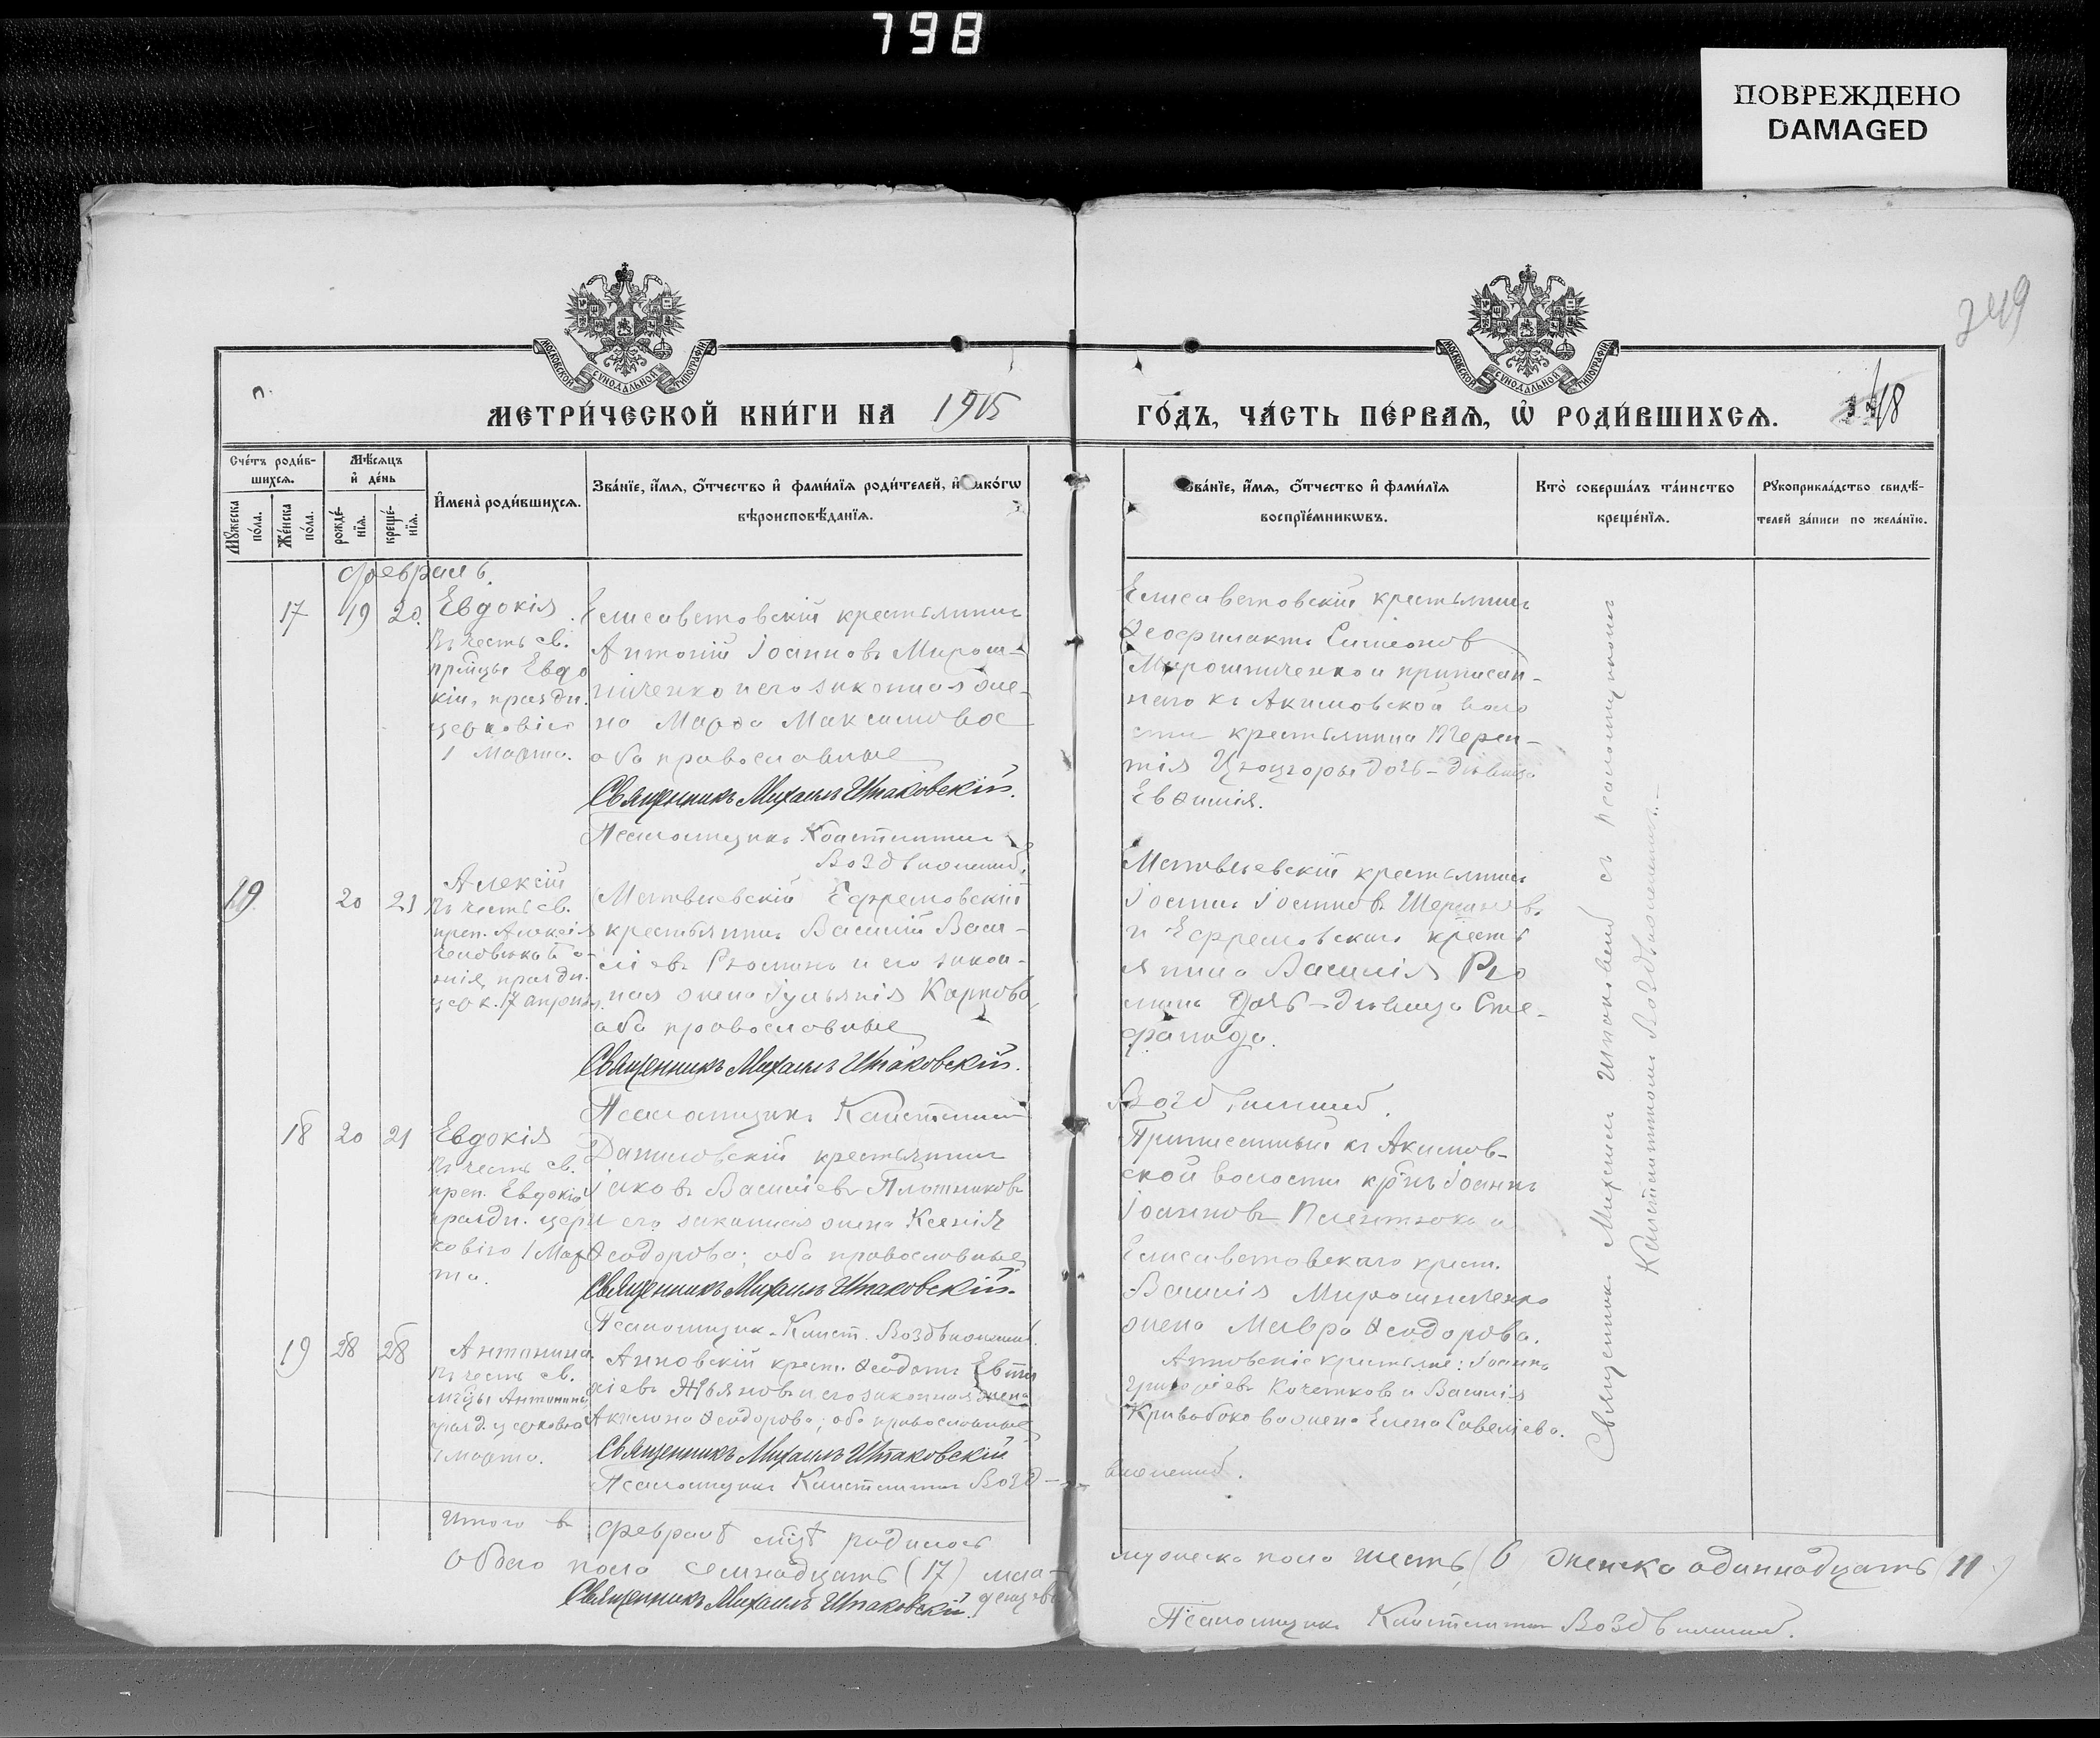 798
ПОВРЕЖДЕНО
DAMAGED
249
МЕТРИ́ЧЕСКОЙ КНИ́ГИ НА 1915
ГО́ДЪ, ЧА́СТЬ ПЕ́РВАѦ, Ѡ РОДИ́ВШИХСѦ.
18
Сче́тъ роди́в-
шихсѧ.
Мѣ́сѧцъ
и҆ де́нь
Мꙋ́жеска
по́ла.
Же́нска
по́ла.
рожде́-
нїѧ.
креще́-
нїѧ.
И҆мена̀ роди́вшихсѧ.
Зва́нїе, и҆́мѧ, ѻ҆́тчество и҆ фами́лїѧ роди́телей, и҆ како́гѡ
вѣроисповѣ́данїѧ.
Зва́нїе, и҆́мѧ, ѻ҆́тчество и҆ фами́лїѧ
воспрїе́мникѡвъ.
Кто̀ соверша́лъ та́инство
креще́нїѧ.
Рꙋкоприкла́дство свидѣ́-
телей за́писи по жела́нїю.
Февраль.
17 19 20 Евдокія
въ честь св.
прмцы Евдо
кіи, праздн.
церковію
1 Марта.
Елисаветовскій крестьянинъ
Антоній Іоанновъ Мирош-
ниченко и его законная же-
на Марѳа Максимова
оба православные
Священникъ Михаилъ Штаковскій.
Псаломщикъ Константинъ
Воздвиженскій.
Елисаветовскій крестьянинъ
Ѳеофилактъ Симеоновъ
Мирошниченко и приписан-
наго къ Акимовской воло
сти крестьянина Терен-
тія Цюцюры дочь-дѣвица
Евѳимія.
19 20 21 Алексій
въ честь св.
преп. Алексія
человѣка Бо-
жія, праздн.
церк. 17 апрѣля
Матвѣевскій Ефремовскій
крестьянинъ Василій Васи-
ліевъ Рюминъ и его закон-
ная жена Іуліанія Карпова,
оба православные
Священникъ Михаилъ Штаковскій.
Псаломщикъ Константинъ
Воздвиженскій.
Матвѣевскій крестьянинъ
Іоаннъ Іоанновъ
и Ефремовскаго кресть
янина Василія Рю
мина дочь-дѣвица Сте-
фанида.
18 20 21 Евдокія
въ честь св.
преп. Евдокіи
праздн. цер
ковію 1 Мар
та.
Даниловскій крестьянинъ
Іаковъ Василіевъ Плотниковъ
и его законная жена Ксенія
Ѳеодорова; оба православные
Священникъ Михаилъ Штаковскій.
Псаломщикъ Конст. Воздвиженскій.
Приписанный къ Акимов-
ской волости кр-нъ Іоаннъ
Іоанновъ и
Елисаветовскаго крест.
Василія Мирошниченко
жена Мавра Ѳеодорова.
19 28 28 Антонина
въ честь св.
мцы Антонины
празд. церковью
1 марта.
Анновскій крест. Ѳеодотъ
и его законная жена
Акилина Ѳеодорова; оба православные
Священникъ Михаилъ Штаковскій
Псаломщикъ Константинъ Возд-
виженскій.
Анновскіе крестьяне: Іоаннъ
Григоріевъ Кочетковъ и Василія
Кривобокова жена Елена Савеліева.
Священникъ Михаилъ Штаковскій съ псаломщикомъ
Константиномъ Воздвиженскимъ.-
Итого въ Февралѣ мцѣ родилось
обоего пола семнадцать (17) мла-
денцевъ
мужеска пола шесть (6) женска одиннадцать (11)
Священникъ Михаилъ Штаковскій.
Псаломщикъ Константинъ Воздвиженскій.